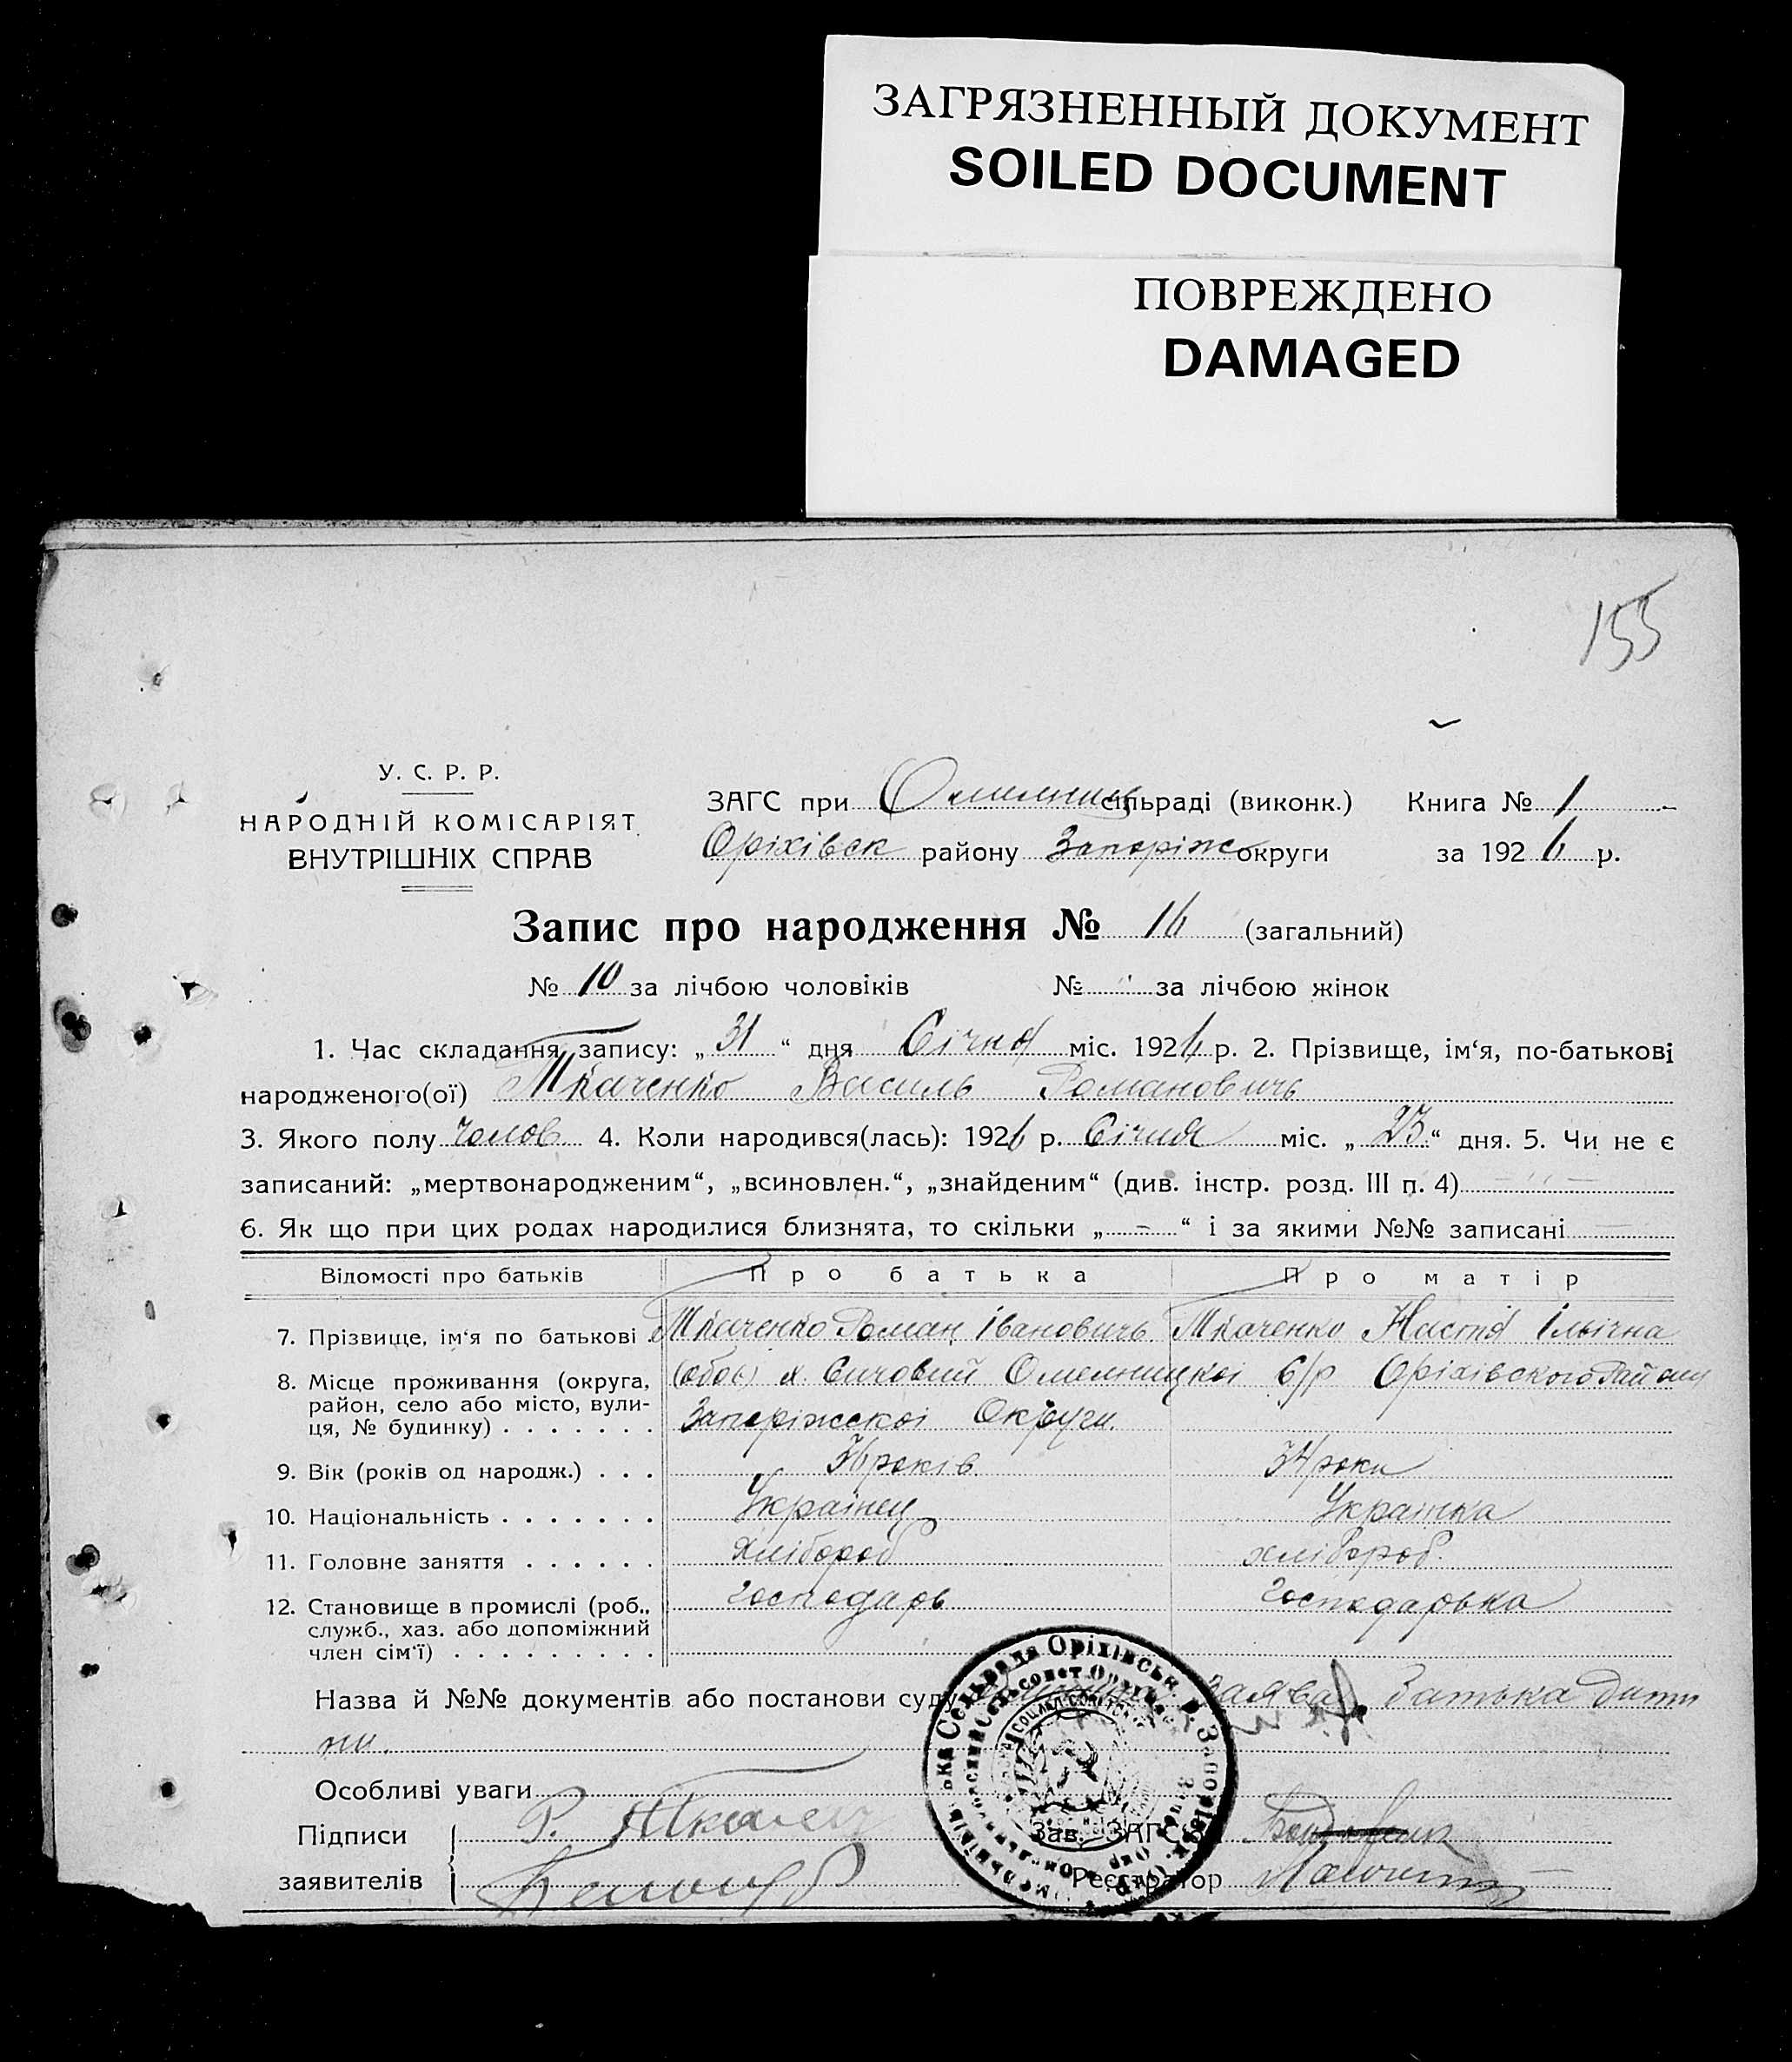 ЗАГРЯЗНЕННЫЙ ДОКУМЕНТ
SOILED DOCUMENT
ПОВРЕЖДЕНО
DAMAGED
155
У. С. Р. Р.
НАРОДНІЙ КОМІСАРІЯТ
ВНУТРІШНІХ СПРАВ
ЗАГС при сільраді (виконк.) Книга № 1
Оріхівск району Запоріж округи за 1926 р.
Запис про народження № 16 (загальний)
№ 10 за лічбою чоловіків № " за лічбою жінок
1. Час складання запису: „31“ дня Січня міс. 1926 р. 2. Прізвище, ім‘я, по-батькові
народженого(ої) Ткаченко Василь Романовичь
3. Якого полу Чолов 4. Коли народився(лась): 1926 р. Січня міс. „23“ дня. 5. Чи не є
записаний: „мертвонародженим“, „всиновлен.“, „знайденим“ (див. інстр. розд. III п. 4) — " —
6. Як що при цих родах народилися близнята, то скільки „ - “ і за якими №№ записані —
Відомості про батьків Про батька Про матір
7. Прізвище, ім‘я по батькові Ткаченко Роман Івановичь Ткаченко Настя Ільічна
8. Місце проживання (округа, район, село або місто, вулиця, № будинку) (обоє) х. Омельницкоі С/р Оріхівского Району
Запоріжскоі Округи.
9. Вік (років од народж.) 36 років 34 роки
10. Національність Українец Українка
11. Головне заняття Хлібороб хлібороб.
12. Становище в промислі (роб., служб., хаз. або допоміжний член сім‘ї) господарь господарька
Назва й №№ документів або постанови суду Заява батька дити
ни.
Особливі уваги
Підписи Р. Ткаченко Зав. ЗАГС‘ом
заявителів Реєстратор